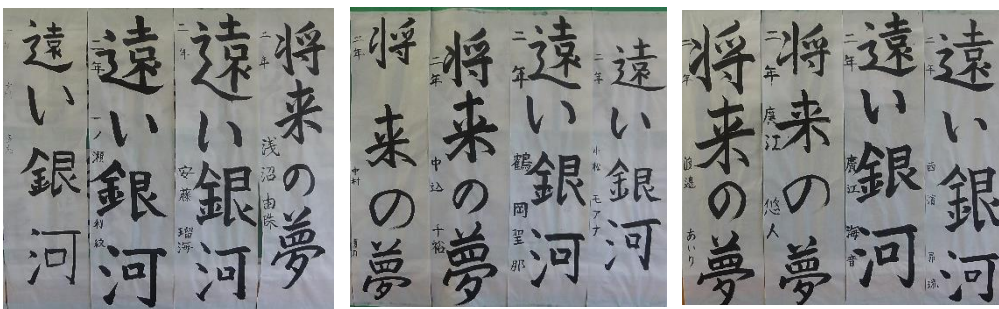 将来の夢
二年 浅沼由珠
遠い銀河
二年 安藤 瑠海
遠い銀河
二年 一ノ瀬
遠い銀河
遠い銀河
二年 小松 モアナ
遠い銀河
二年 鶴岡聖那
将来の夢
二年 中込 千裕
将来の夢
二年 中村
遠い銀河
二年 西濱
遠い銀河
二年 廣江 海音
将来の夢
二年 廣江 悠人
将来の夢
二年 あいり